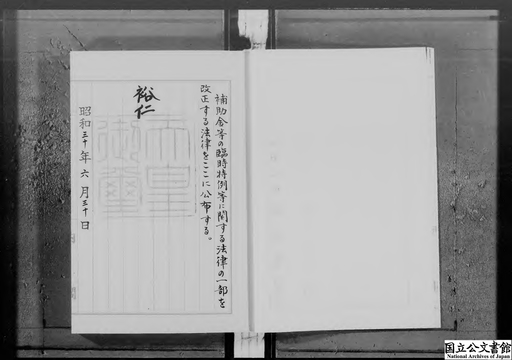 補助金等の臨時特例等に関する法律の一部を
改正する法律をここに公布する。
裕仁
天皇御璽
昭和三十年六月三十日
国立公文書館
National Archives of Japan